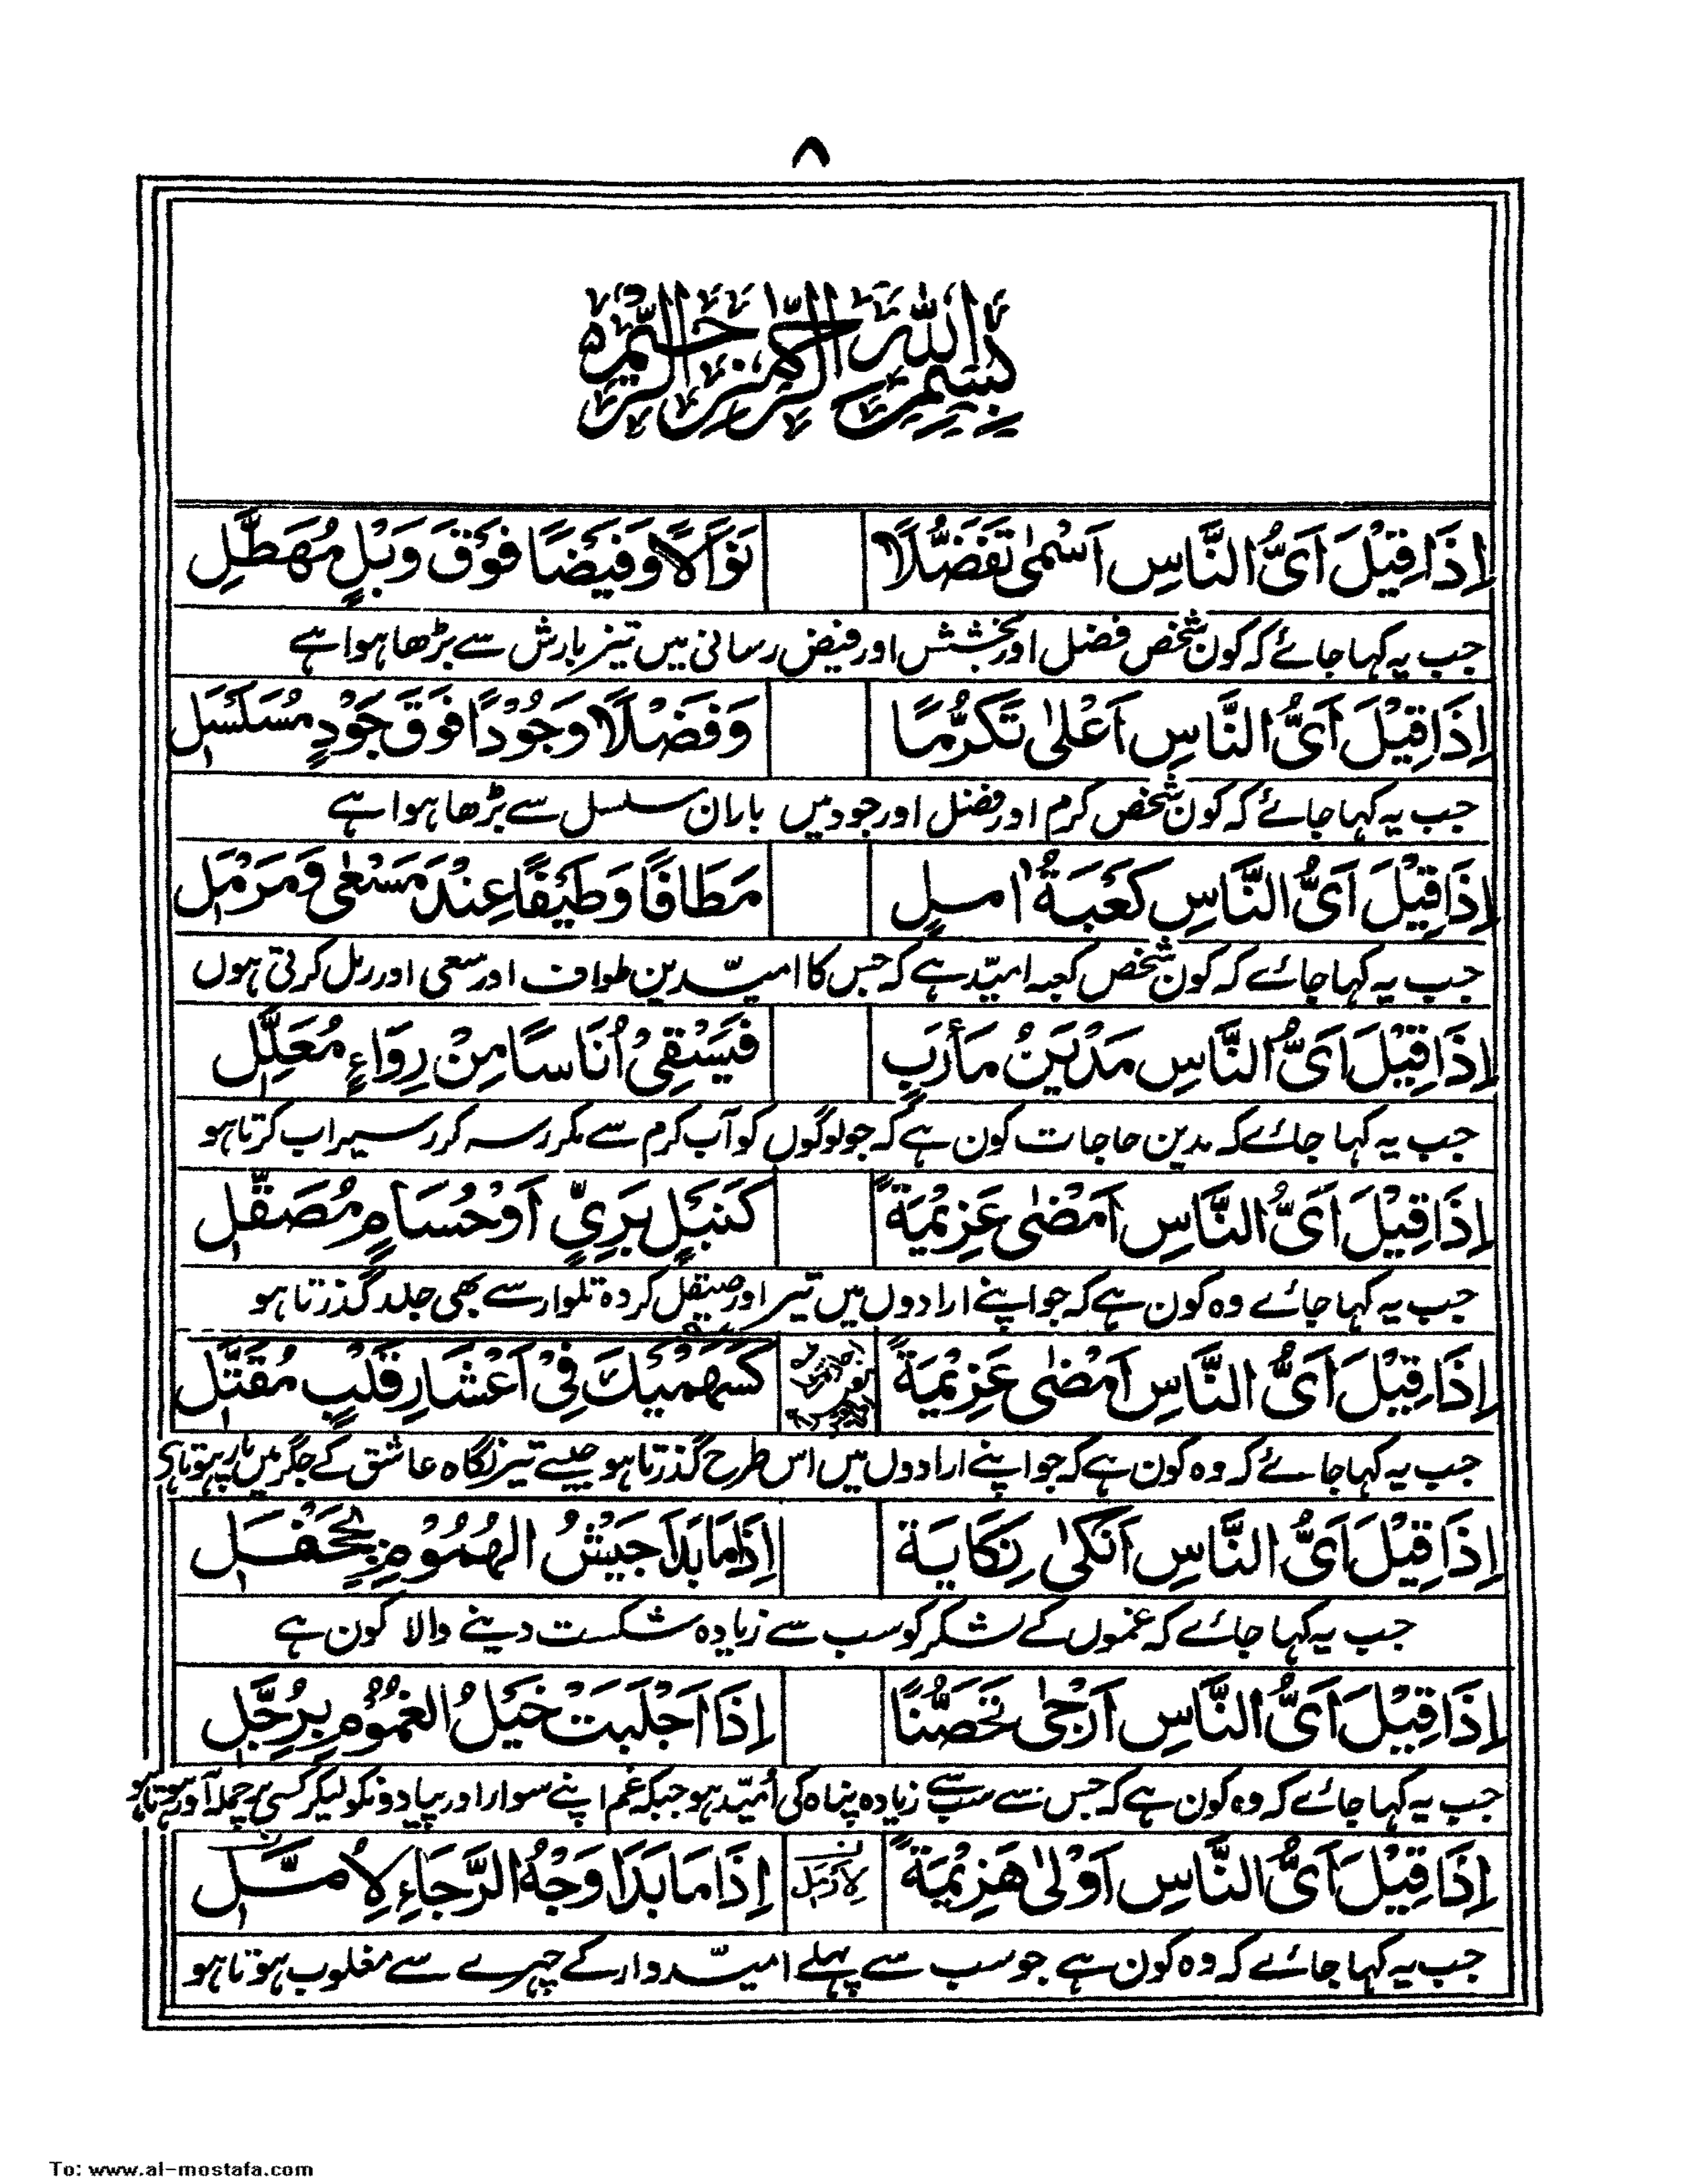 ۸
بِسْمِ اللهِ الرَّحْمٰنِ الرَّحِیْمِ
اِذَا قِیْلَ اَیُّ النَّاسِ اَسْمٰی تَفَضُّلًا نَوَالًا وَفَیْضًا فَوْقَ وَبْلٍ مُهَطَّلِ
جب یہ کہا جائے کہ کون شخص فضل اور بخشش اور فیض رسانی میں تیز بارش سے بڑھا ہوا ہے
اِذَا قِیْلَ اَیُّ النَّاسِ اَعْلٰی تَکَرُّمًا وَفَضْلًا وَجُوْدًا فَوْقَ جَوْدٍ مُسَلْسَلِ
جب یہ کہا جائے کہ کون شخص کرم اور فضل اور جود میں باران سلسل سے بڑھا ہوا ہے
اِذَا قِیْلَ اَیُّ النَّاسِ کَعْبَةُ اٰمِلٍ مَطَافًا وَطَیْفًا عِنْدَ مَسْعٰی وَمَرْمَلِ
جب یہ کہا جائے کہ کون شخص کعبہ امید ہے کہ جس کا امیدین طواف اور سعی اور رمل کرتی ہوں
اِذَا قِیْلَ اَیُّ النَّاسِ مَدْیَنُ مَأْرَبٍ فَیَسْقِیْ اُنَاسًا مِنْ رِوَاءٍ مُعَلِّلِ
جب یہ کہا جائے کہ مدین حاجات کون ہے کہ جو لوگوں کو آب کرم سے مکرر سہ کرر سیراب کرتا ہو
اِذَا قِیْلَ اَیُّ النَّاسِ اَمْضٰی عَزِیْمَةً کَنَبْلٍ بَرِیٍّ اَوْ حُسَامٍ مُصَقَّلِ
جب یہ کہا جائے وہ کون ہے کہ جو اپنے ارادوں میں تیر اور صیقل کردہ تلوار سے بھی جلد گذرتا ہو
اِذَا قِیْلَ اَیُّ النَّاسِ اَمْضٰی عَزِیْمَةً کَسَهْمَیْكَ فِیْ اَعْشَارِ قَلْبٍ مُقَتَّلِ
جب یہ کہا جائے کہ وہ کون ہے کہ جو اپنے ارادوں میں اس طرح گذرتا ہو جیسے تیز نگاہ عاشق کے جگر میں پار ہوتا ہی
اِذَا قِیْلَ اَیُّ النَّاسِ اَنْکٰی نِکَایَة اِذَا مَا بَدَا جَیْشُ الهُمُوْمِ بِجَحْفَلِ
جب یہ کہا جائے کہ غموں کے لشکر کو سب سے زیادہ شکست دینے والا کون ہے
اِذَا قِیْلَ اَیُّ النَّاسِ اَرْجٰی تَحَصُّنًا اِذَا اَجْلَبَتْ خَیْلُ الغُمُوْمِ بِرُجَّلِ
جب یہ کہا جائے کہ وہ کون ہے کہ جس سے سب سے زیادہ پناہ کی اُمید ہو جبکہ غم اپنے سوار اور پیادونکو لیکر کسی پر حملہ آور ہوتا ہو
اِذَا قِیْلَ اَیُّ النَّاسِ اَوْلٰی هَزِیْمَةً لِاَرْمَلِ اِذَا مَا بَدَا وَجْهُ الرَّجَاءِ لِاُمَّلِ
جب یہ کہا جائے کہ وہ کون ہے جو سب سے پہلے امیدوار کے چہرے سے مغلوب ہوتا ہو
To: www.al-mostafa.com